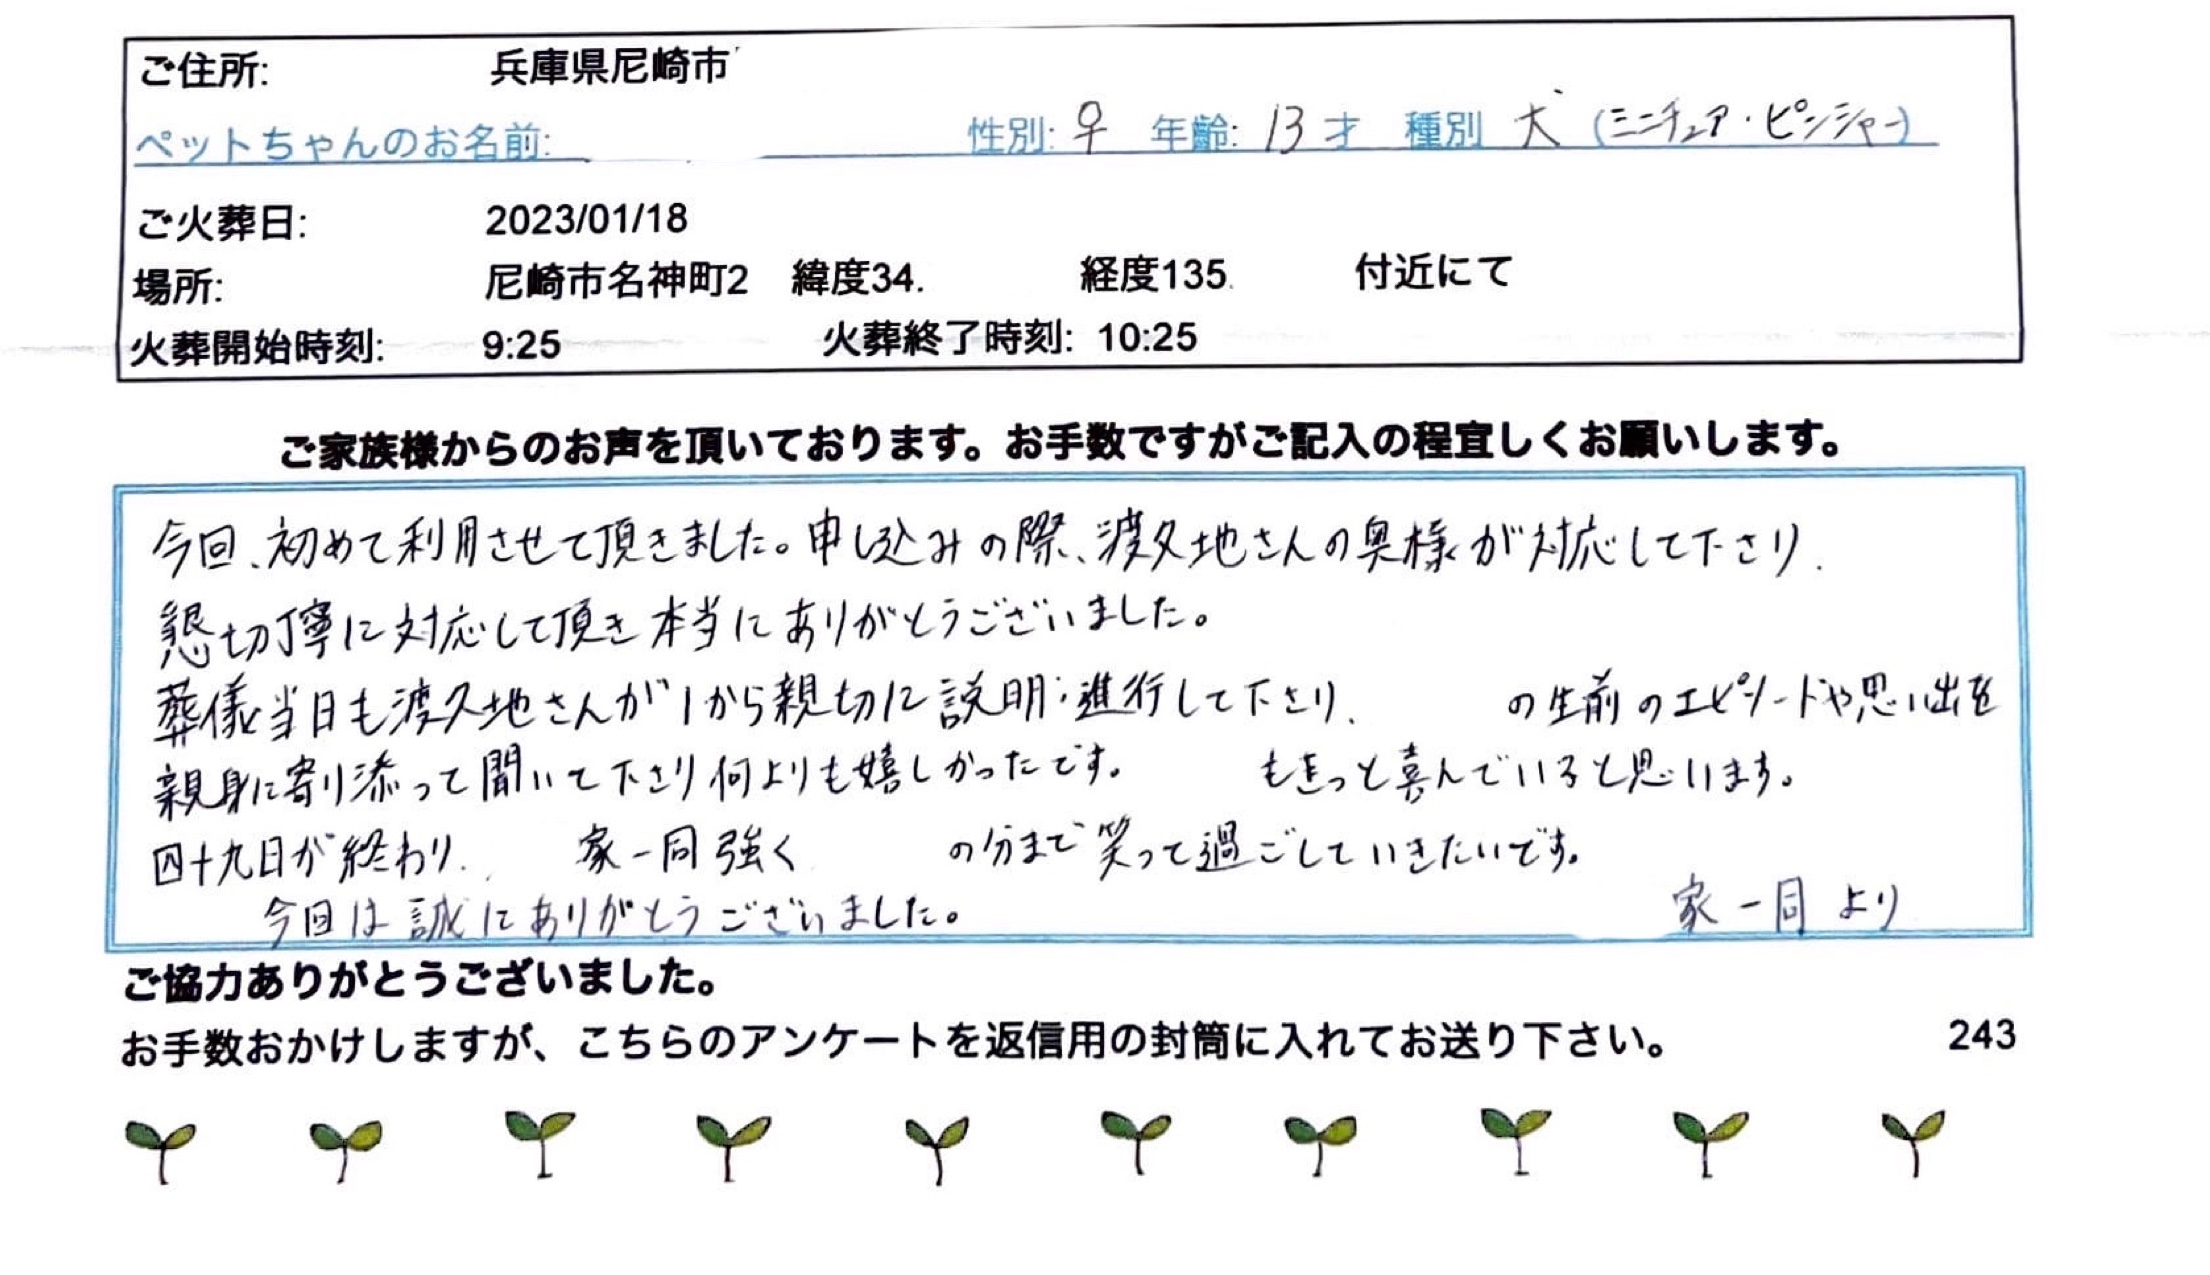 ご住所: 兵庫県尼崎市
ペットちゃんのお名前: 性別: ♀ 年齢: 13才 種別 犬 (ミニチュア・ピンシャー)
ご火葬日: 2023/01/18
場所: 尼崎市名神町2 緯度34. 経度135. 付近にて
火葬開始時刻: 9:25 火葬終了時刻: 10:25
ご家族様からのお声を頂いております。お手数ですがご記入の程宜しくお願いします。
今回、初めて利用させて頂きました。申し込みの際、渡久地さんの奥様が対応して下さり、
懇切丁寧に対応して頂き本当にありがとうございました。
葬儀当日も渡久地さんが1から親切に説明・進行して下さり、 の生前のエピソードや思い出を
親身に寄り添って聞いて下さり何よりも嬉しかったです。 もきっと喜んでいると思います。
四十九日が終わり、 家一同強く の分まで笑って過ごしていきたいです。
今回は誠にありがとうございました。 家一同より
ご協力ありがとうございました。
お手数おかけしますが、こちらのアンケートを返信用の封筒に入れてお送り下さい。 243